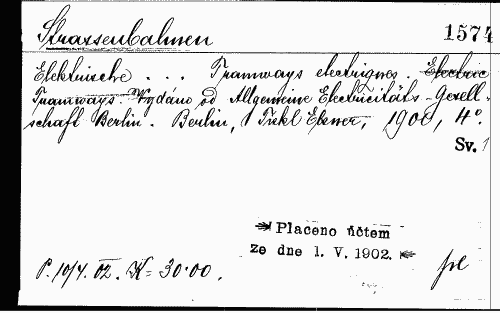 Strassenbahnen 1574
Elektrische . . . Tramways electriques. Electric
Tramways. Vydáno od Allgemeine Electricitäts-Gesell-
schaft Berlin. Berlin, Elsner, 1900, 4°.
Sv. 1
Placeno účtem
ze dne 1. V. 1902.
P. 10/4. 02. K= 30·00.